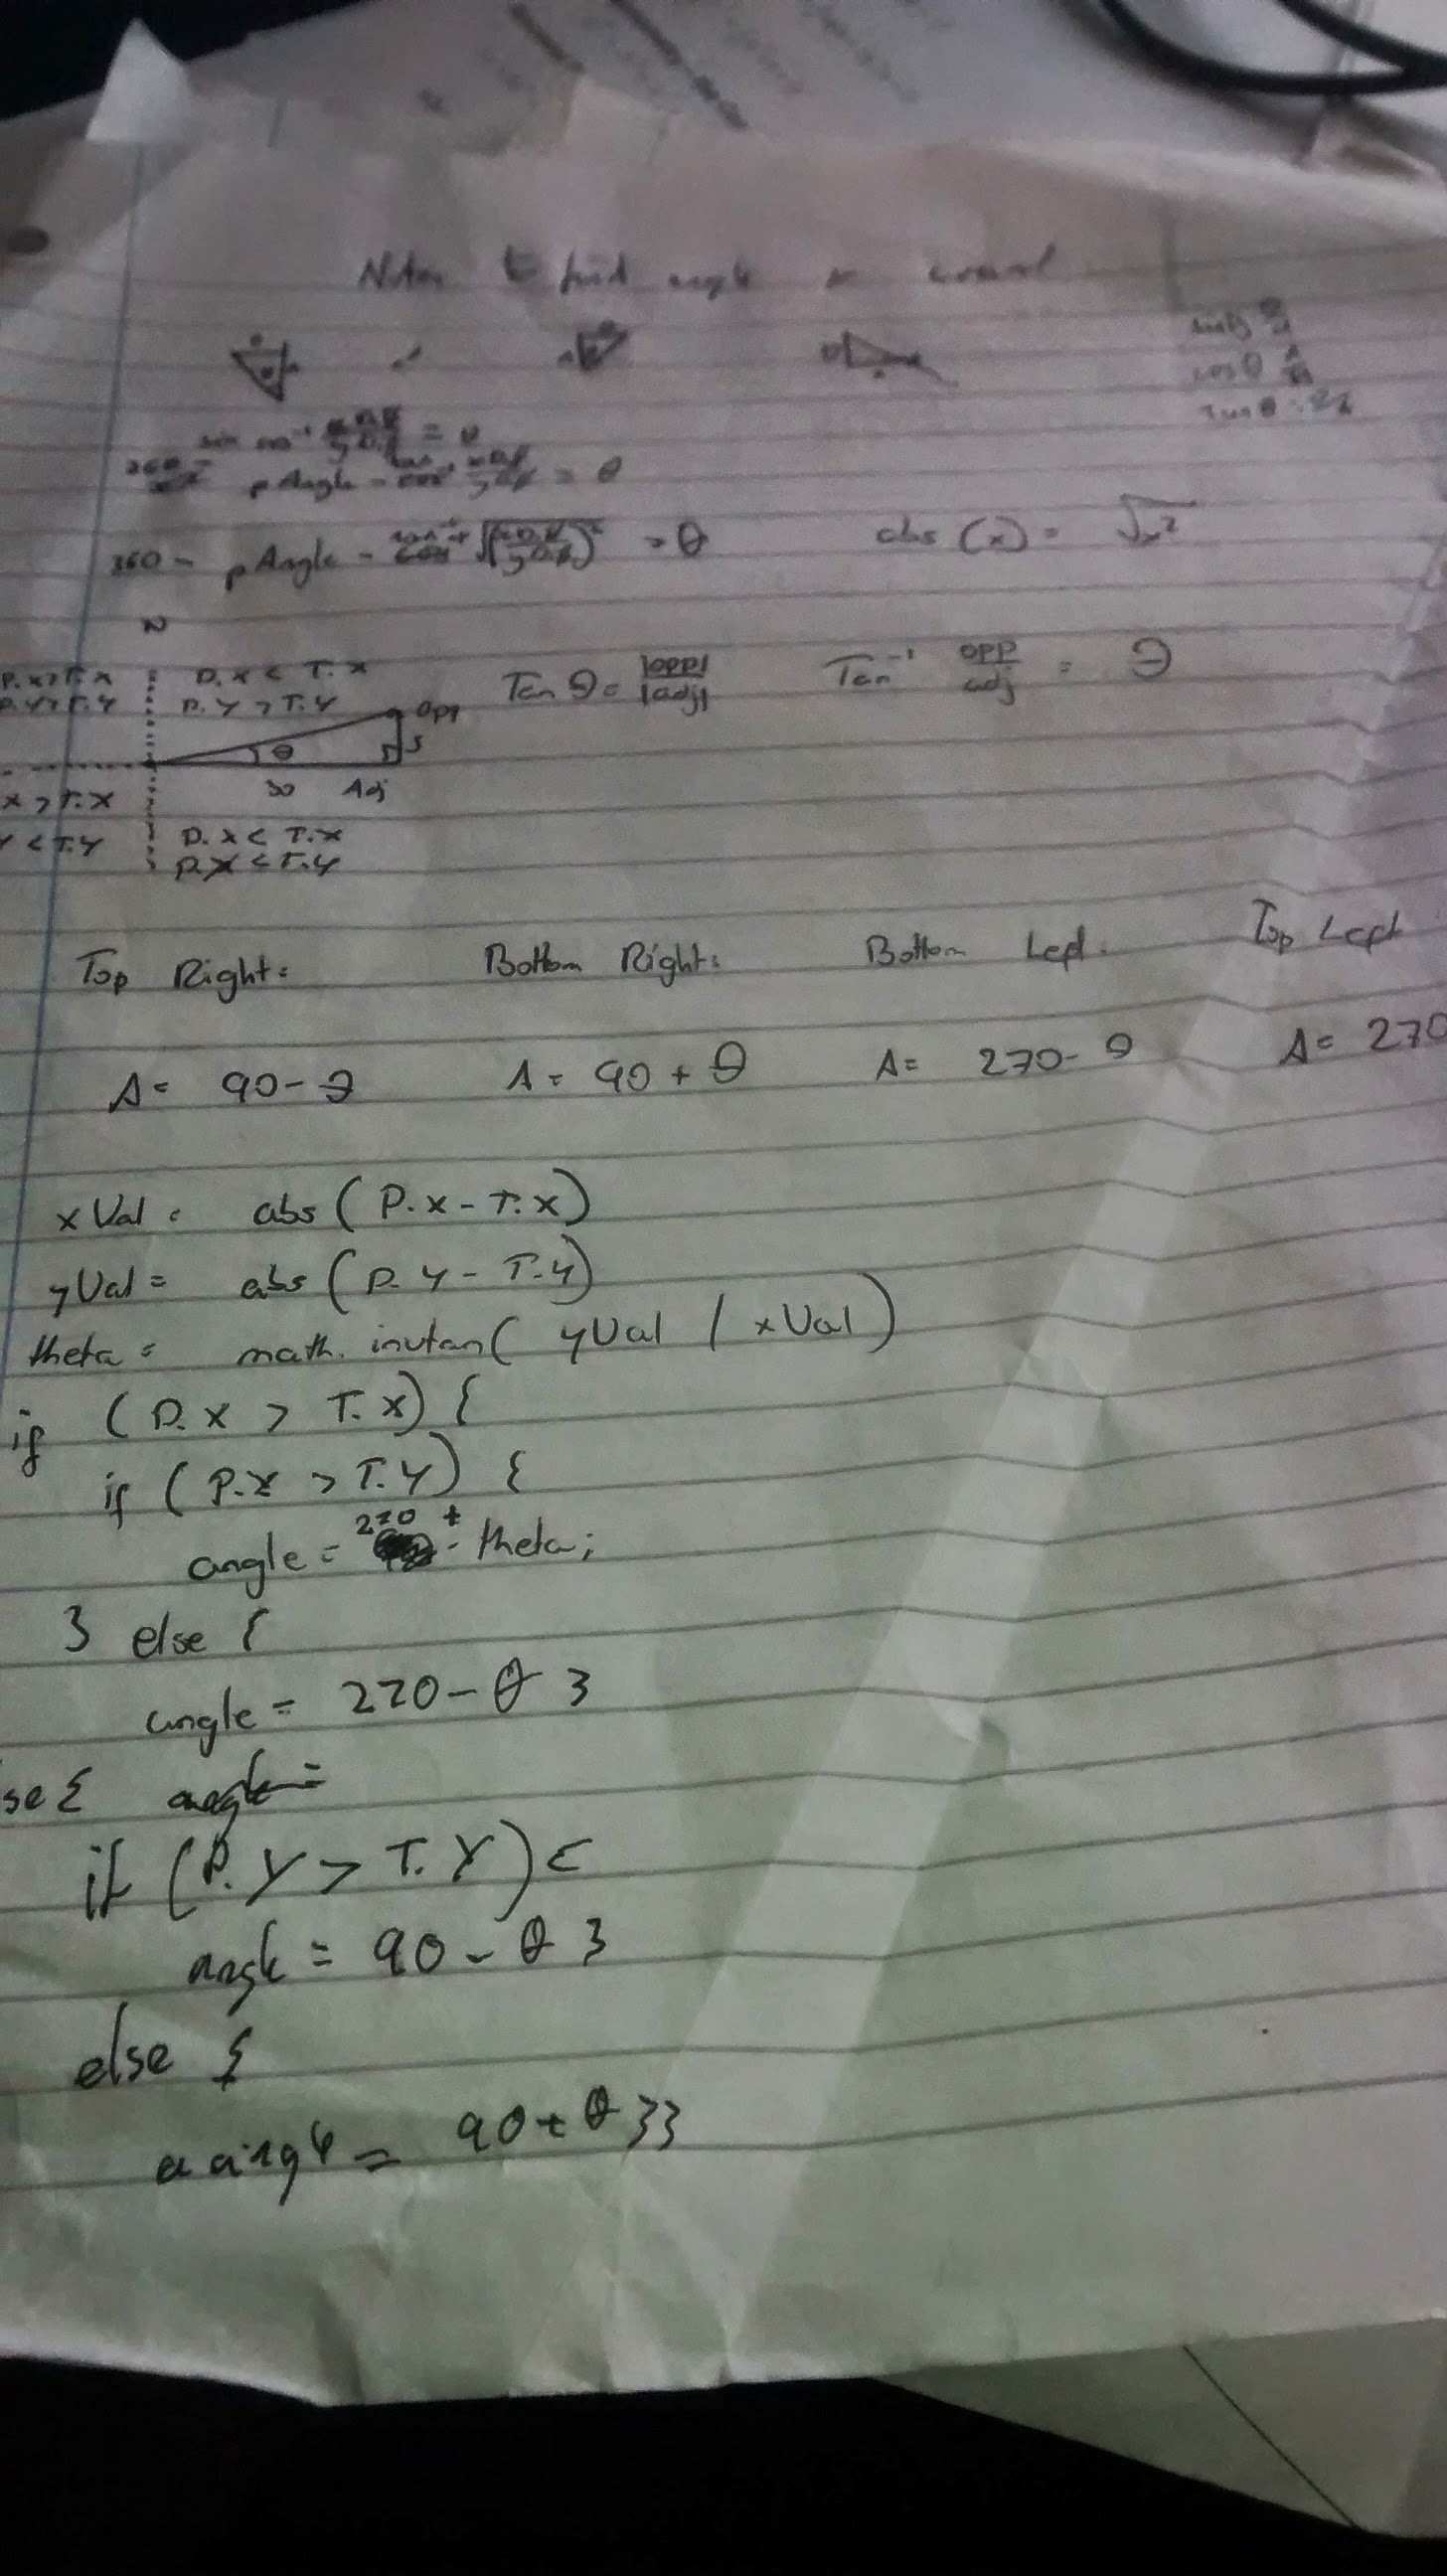 Notes to find angle
cos θ
Tan θ
= θ
pAngle - = θ
360 - pAngle - = θ abs (x) = √x²
N
P.x > T.x P.x < T.x Tan θ = |opp| / |adj| Tan⁻¹ opp / adj = θ
P.Y > T.Y P.Y > T.Y opp
θ 5
30 Adj
x > T.x
Y < T.Y P.x < T.x
P.Y < T.Y
Top Right: Bottom Right: Bottom Left: Top Left
A = 90 - θ A = 90 + θ A = 270 - θ A = 270
xVal = abs (P.x - T.x)
yVal = abs (P.Y - T.Y)
theta = math.invtan( yVal / xVal )
if (P.x > T.x) {
if (P.Y > T.Y) {
angle = 270 + theta;
} else {
angle = 270 - θ }
se { angle =
if (P.Y > T.Y) {
angle = 90 - θ }
else {
angle = 90 + θ }}